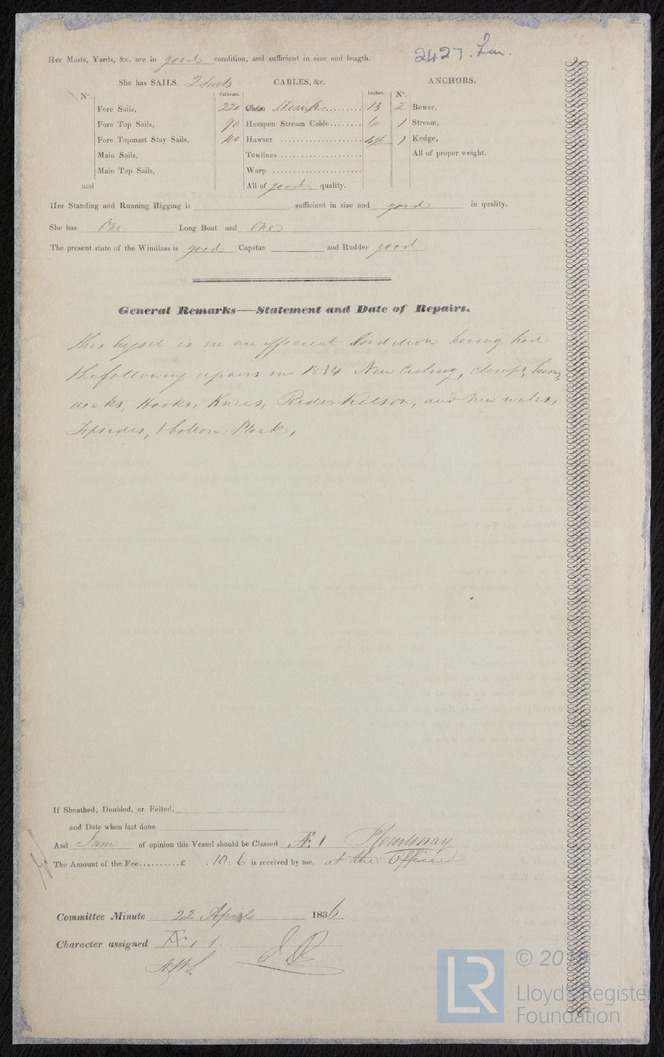 2427. Lon.
Her Masts, Yards, &c. are in good condition, and sufficient in size and length.
She has SAILS. 2 Suits CABLES, &c. ANCHORS.
N°. Fathoms. Inches. N°.
Fore Sails, 220 Chain 13 2 Bower,
Fore Top Sails, 90 Hempen Stream Cable 6 1 Stream,
Fore Topmast Stay Sails, Hawser 1 Kedge,
Main Sails, Towlines All of proper weight.
Main Top Sails, Warp
and All of good quality.
Her Standing and Running Rigging is sufficient in size and good in quality.
She has One Long Boat and One
The present state of the Windlass is good Capstan and Rudder good
General Remarks—Statement and Date of Repairs.
This vessel is in an efficient condition having had
the following repairs in 1834 New Ceiling, clamps, beams,
decks, Hooks, Knees, Rider Kelson, and New wales,
Topsides, & bottom Plank,
If Sheathed, Doubled, or Felted,
and Date when last done
And I am of opinion this Vessel should be Classed Æ 1 P Courtenay
The Amount of the Fee..........£ : 10 : 6 is received by me, at the Office
Committee Minute 22 April 1836
Character assigned Æ 1
© 20
Lloyd's Register
Foundation
LR